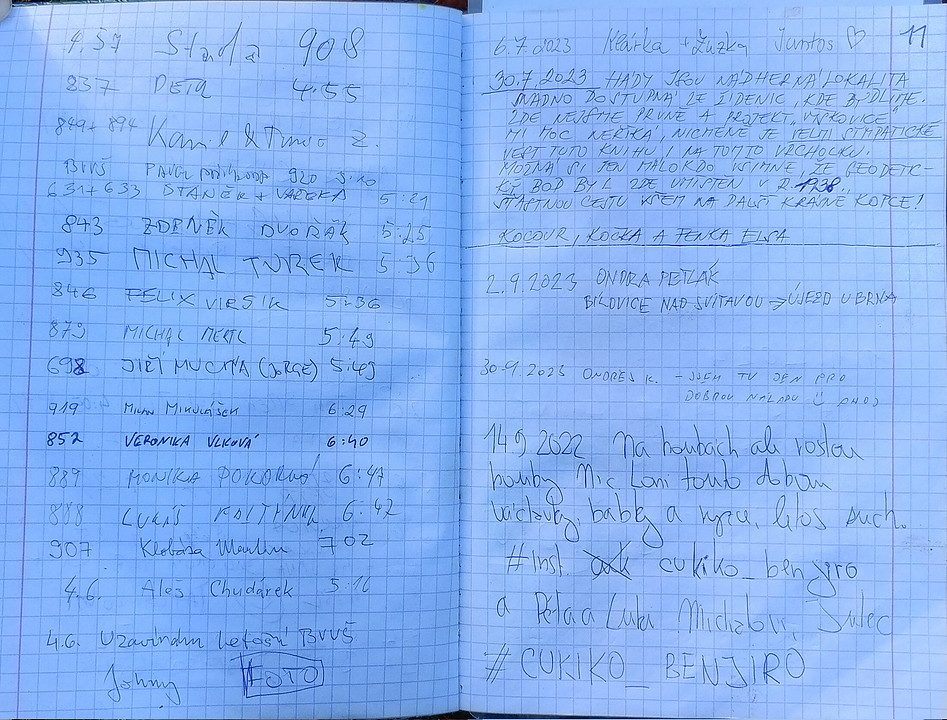 4.57 Stáďa 908
837 PETA 4:55
849+894 Kamil & Z.
BVVŠ PAVEL 920 5:10
631+633 STANĚK + VAŘEKA 5:21
843 ZDENĚK DVOŘÁK 5:25
935 MICHAL TUREK 5:36
846 FELIX VIRSIK 5:36
879 MICHAL MERTL 5:49
698 JIŘÍ MUCHA (JORGE) 5:49
919 MILAN MIKULÁŠEK 6:29
852 VERONIKA VLKOVÁ 6:40
889 MONIKA POKORNÁ 6:47
888 LUKÁŠ 6:42
907 Klobása Martin 7 02
4.6. Aleš Chudárek 5:16
4.6. Uzavírám letošní BVVŠ
Johny FOTO
11
6.7.2023 Klárka + Zuzka Juntos ♡
30.7.2023 HÁDY JSOU NÁDHERNÁ LOKALITA
SNADNO DOSTUPNÁ ZE ŽIDENIC, KDE BYDLÍME.
ZDE NEJSME PRVNĚ A PROJEKT "VÝŠKOVICE"
MI MOC NEŘÍKÁ, NICMÉNĚ JE VELMI SYMPATICKÉ
VÉST TUTO KNIHU I NA TOMTO VRCHOLKU.
MOŽNÁ SI JEN MÁLOKDO VŠIMNE, ŽE GEODETIC-
KÝ BOD BYL ZDE UMÍSTĚN V R. 1938..
ŠŤASTNOU CESTU VŠEM NA DALŠÍ KRÁSNÉ KOPCE!
KOCOUR, KOČKA A FENKA ELSA
2.9.2023 ONDRA PETLÁK
BÍLOVICE NAD SVITAVOU → ÚJEZD U BRNA
30.9.2023 ONDŘEJ K. - JSEM TU JEN PRO
DOBROU NÁLADU Ü
14.9 2022 Na houbách ale rostou
houby Nic Loni touto dobou
václavky, babky a ryzce. letos such.
#Inst. cukiko_benjiro
a Péťa a Luba
# CUKIKO_BENJIRO